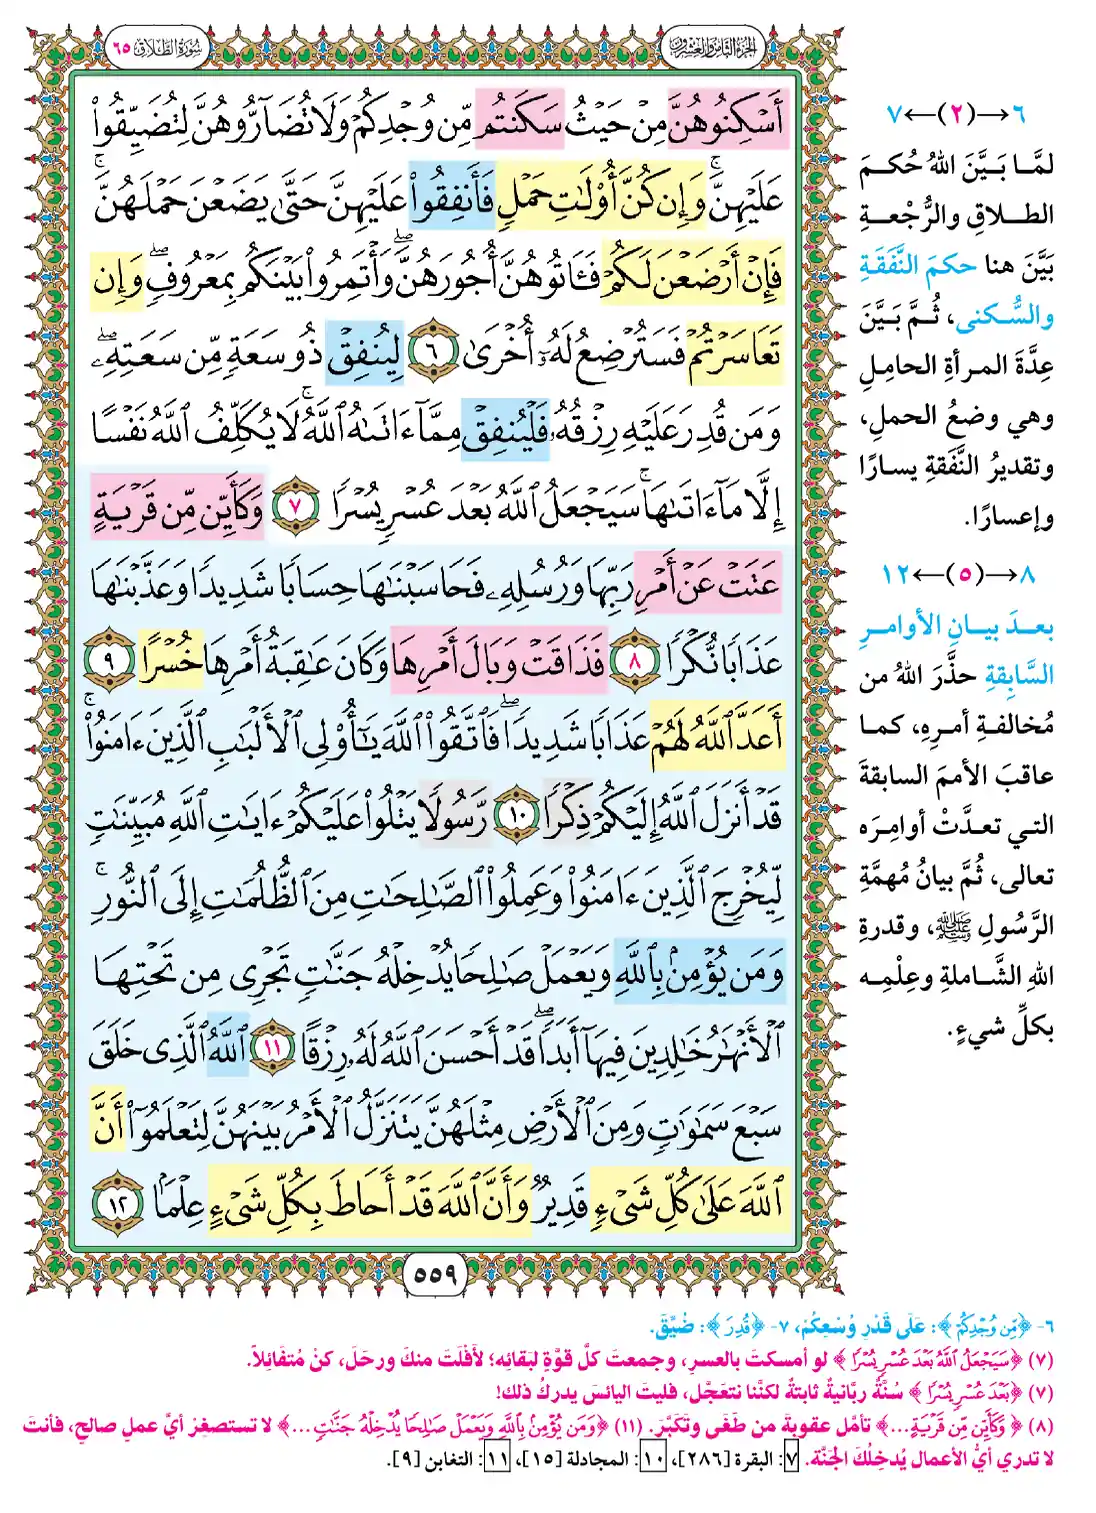 الجزء الثامن والعشرون
سورة الطلاق ٦٥
أَسْكِنُوهُنَّ مِنْ حَيْثُ سَكَنتُم مِّن وُجْدِكُمْ وَلَا تُضَآرُّوهُنَّ لِتُضَيِّقُوا۟
عَلَيْهِنَّ ۚ وَإِن كُنَّ أُو۟لَٰتِ حَمْلٍ فَأَنفِقُوا۟ عَلَيْهِنَّ حَتَّىٰ يَضَعْنَ حَمْلَهُنَّ ۚ
فَإِنْ أَرْضَعْنَ لَكُمْ فَـَٔاتُوهُنَّ أُجُورَهُنَّ ۖ وَأْتَمِرُوا۟ بَيْنَكُم بِمَعْرُوفٍ ۖ وَإِن
تَعَاسَرْتُمْ فَسَتُرْضِعُ لَهُۥٓ أُخْرَىٰ ٦ لِيُنفِقْ ذُو سَعَةٍ مِّن سَعَتِهِۦ ۖ
وَمَن قُدِرَ عَلَيْهِ رِزْقُهُۥ فَلْيُنفِقْ مِمَّآ ءَاتَىٰهُ ٱللَّهُ ۚ لَا يُكَلِّفُ ٱللَّهُ نَفْسًا
إِلَّا مَآ ءَاتَىٰهَا ۚ سَيَجْعَلُ ٱللَّهُ بَعْدَ عُسْرٍ يُسْرًا ٧ وَكَأَيِّن مِّن قَرْيَةٍ
عَتَتْ عَنْ أَمْرِ رَبِّهَا وَرُسُلِهِۦ فَحَاسَبْنَٰهَا حِسَابًا شَدِيدًا وَعَذَّبْنَٰهَا
عَذَابًا نُّكْرًا ٨ فَذَاقَتْ وَبَالَ أَمْرِهَا وَكَانَ عَٰقِبَةُ أَمْرِهَا خُسْرًا ٩
أَعَدَّ ٱللَّهُ لَهُمْ عَذَابًا شَدِيدًا ۖ فَٱتَّقُوا۟ ٱللَّهَ يَٰٓأُو۟لِى ٱلْأَلْبَٰبِ ٱلَّذِينَ ءَامَنُوا۟ ۚ
قَدْ أَنزَلَ ٱللَّهُ إِلَيْكُمْ ذِكْرًا ١٠ رَّسُولًا يَتْلُوا۟ عَلَيْكُمْ ءَايَٰتِ ٱللَّهِ مُبَيِّنَٰتٍ
لِّيُخْرِجَ ٱلَّذِينَ ءَامَنُوا۟ وَعَمِلُوا۟ ٱلصَّٰلِحَٰتِ مِنَ ٱلظُّلُمَٰتِ إِلَى ٱلنُّورِ ۚ
وَمَن يُؤْمِنۢ بِٱللَّهِ وَيَعْمَلْ صَٰلِحًا يُدْخِلْهُ جَنَّٰتٍ تَجْرِى مِن تَحْتِهَا
ٱلْأَنْهَٰرُ خَٰلِدِينَ فِيهَآ أَبَدًا ۖ قَدْ أَحْسَنَ ٱللَّهُ لَهُۥ رِزْقًا ١١ ٱللَّهُ ٱلَّذِى خَلَقَ
سَبْعَ سَمَٰوَٰتٍ وَمِنَ ٱلْأَرْضِ مِثْلَهُنَّ يَتَنَزَّلُ ٱلْأَمْرُ بَيْنَهُنَّ لِتَعْلَمُوٓا۟ أَنَّ
ٱللَّهَ عَلَىٰ كُلِّ شَىْءٍ قَدِيرٌ وَأَنَّ ٱللَّهَ قَدْ أَحَاطَ بِكُلِّ شَىْءٍ عِلْمًۢا ١٢
٥٥٩
٦←(٢)→٧
لمَّا بَيَّنَ اللهُ حُكمَ
الطلاقِ والرُّجْعةِ
بَيَّنَ هنا حكمَ النَّفَقَةِ
والسُّكنى، ثُمَّ بَيَّنَ
عِدَّةَ المرأةِ الحاملِ
وهي وضعُ الحملِ،
وتقديرُ النَّفقةِ يسارًا
وإعسارًا.
٨←(٥)→١٢
بعدَ بيانِ الأوامرِ
السَّابِقةِ حذَّرَ اللهُ من
مُخالفةِ أمرِهِ، كما
عاقبَ الأممَ السابقةَ
التي تعدَّتْ أوامِرَه
تعالى، ثُمَّ بيانُ مُهمَّةِ
الرَّسُولِ ﷺ، وقدرةِ
اللهِ الشَّاملةِ وعِلْمِه
بكلِّ شيءٍ.
٦- ﴿مِّن وُجْدِكُمْ﴾: عَلَى قَدْرِ وُسْعِكُمْ، ٧- ﴿قُدِرَ﴾: ضُيِّقَ.
(٧) ﴿سَيَجْعَلُ ٱللَّهُ بَعْدَ عُسْرٍ يُسْرًا﴾ لو أمسكتَ بالعسرِ، وجمعتَ كلَّ قوَّةٍ لبَقائِه؛ لأفلَتَ منكَ ورحَلَ، كنْ مُتفَائِلاً.
(٧) ﴿بَعْدَ عُسْرٍ يُسْرًا﴾ سُنَّةٌ ربَّانيةٌ ثابتةٌ لكنَّنا نتعَجَّل، فليتَ اليائسَ يدركُ ذلك!
(٨) ﴿وَكَأَيِّن مِّن قَرْيَةٍ...﴾ تأمَّل عقوبةَ من طَغَى وتكَبَّرَ. (١١) ﴿وَمَن يُؤْمِنۢ بِٱللَّهِ وَيَعْمَلْ صَٰلِحًا يُدْخِلْهُ جَنَّٰتٍ...﴾ لا تستصغِرْ أيَّ عملٍ صالحٍ، فأنتَ
لا تدري أيُّ الأعمالِ يُدخِلُكَ الجَنَّة. ٧: البقرة [٢٨٦]، ١٠: المجادلة [١٥]، ١١: التغابن [٩].